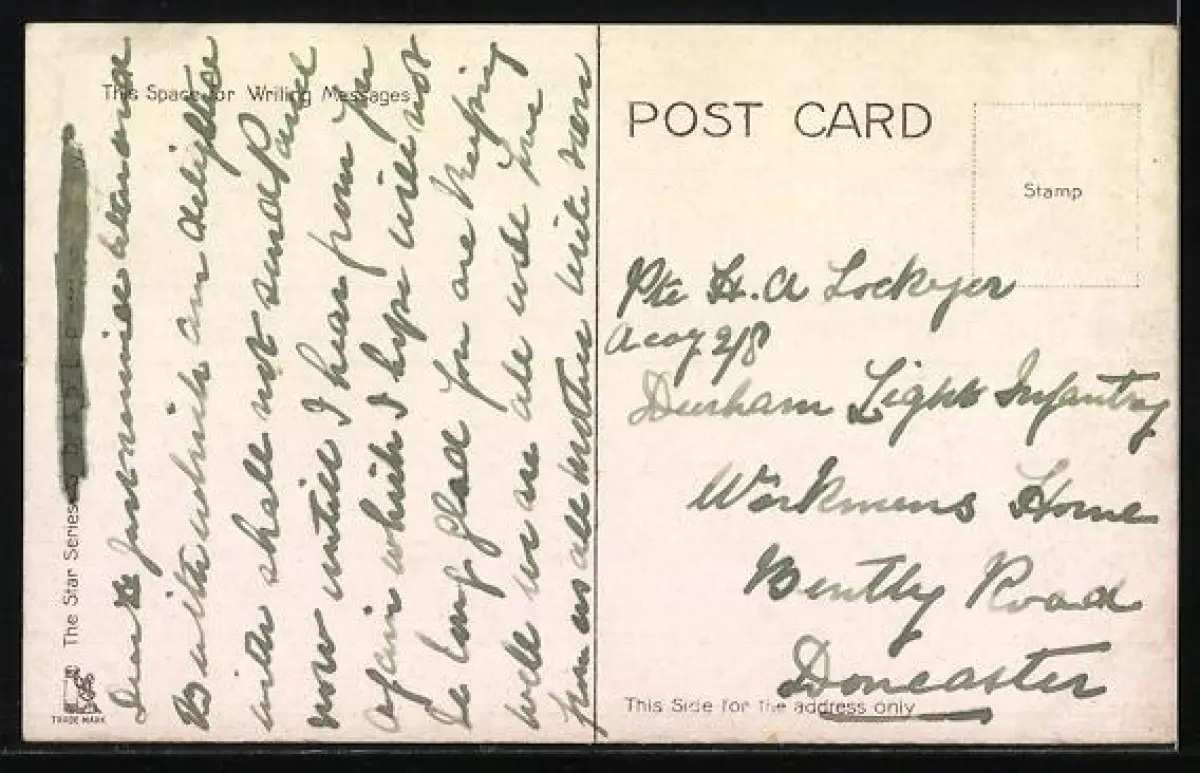 This Space for Writing Messages
The Star Series
TRADE MARK
Dear H just received letter on
B with which am delighted
with shall not send P card
now untill I hear from you
again which I hope will not
be long glad you are keeping
well we are all well love
from us all Mother write soon
POST CARD
Stamp
Pte H. A Lockyer
A coy 2/8
Durham Light Infantry
Workmens Home
Bently Road
Doncaster
This Side for the address only